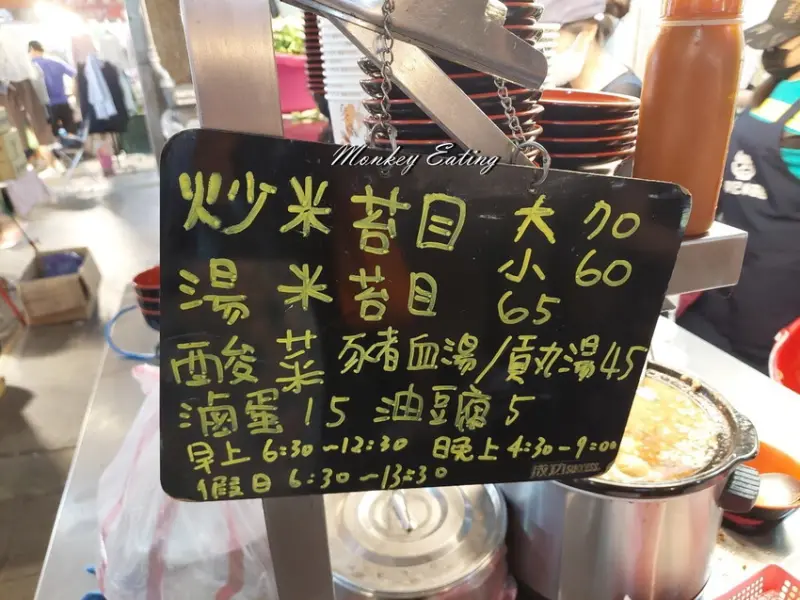 Monkey Eating
炒米苔目 大 70
小 60
湯米苔目 65
酸菜豬血湯/貢丸湯45
滷蛋15 油豆腐5
早上6:30-12:30 晚上4:30-9:00
假日6:30-13:30